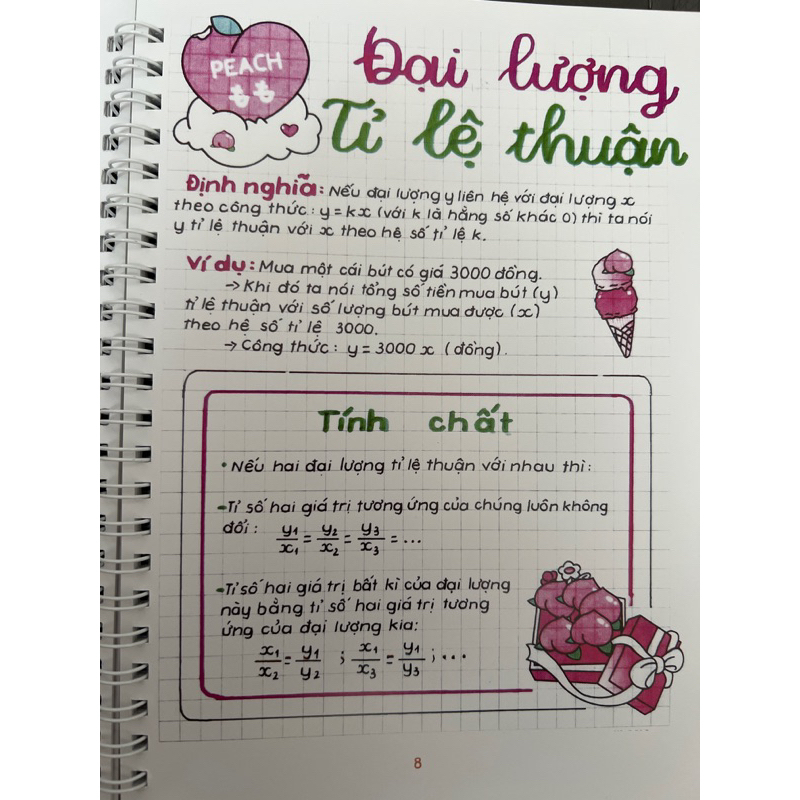 PEACH
Đại lượng
Tỉ lệ thuận
Định nghĩa: Nếu đại lượng y liên hệ với đại lượng x
theo công thức: y = kx (với k là hằng số khác 0) thì ta nói
y tỉ lệ thuận với x theo hệ số tỉ lệ k.
Ví dụ: Mua một cái bút có giá 3000 đồng.
→ Khi đó ta nói tổng số tiền mua bút (y)
tỉ lệ thuận với số lượng bút mua được (x)
theo hệ số tỉ lệ 3000.
→ Công thức: y = 3000 x (đồng).
Tính chất
• Nếu hai đại lượng tỉ lệ thuận với nhau thì:
-Tỉ số hai giá trị tương ứng của chúng luôn không
đổi: y1/x1 = y2/x2 = y3/x3 = ...
-Tỉ số hai giá trị bất kì của đại lượng
này bằng tỉ số hai giá trị tương
ứng của đại lượng kia:
x1/x2 = y1/y2 ; x1/x3 = y1/y3 ; ...
8